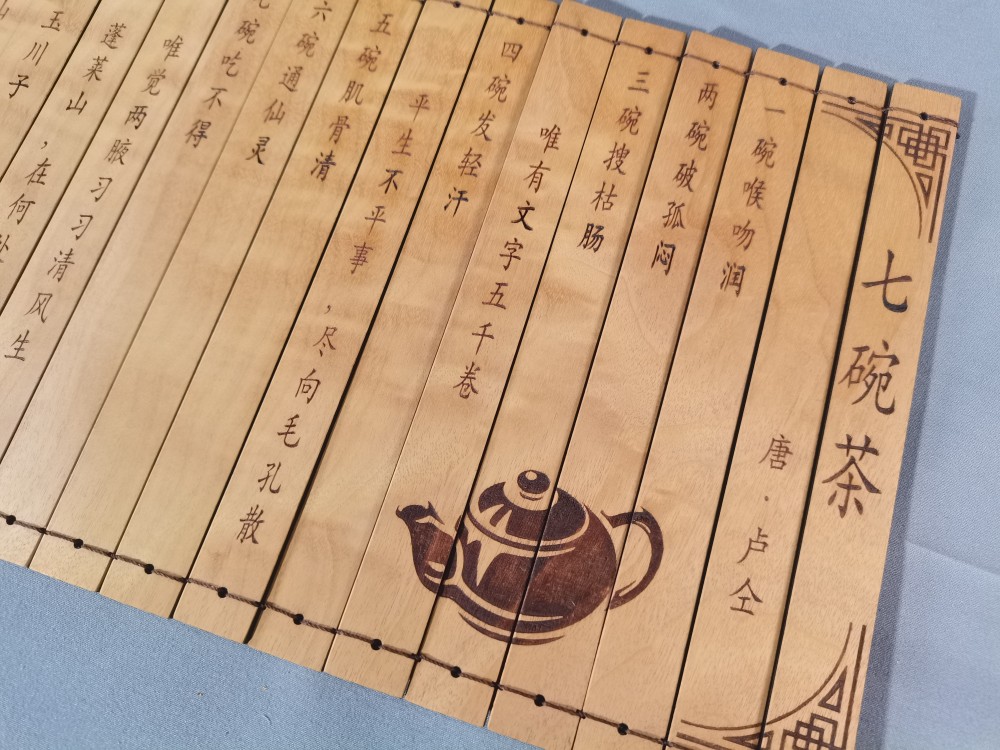 七碗茶
唐·卢仝
一碗喉吻润
两碗破孤闷
三碗搜枯肠
唯有文字五千卷
四碗发轻汗
平生不平事，尽向毛孔散
五碗肌骨清
六碗通仙灵
七碗吃不得
唯觉两腋习习清风生
蓬莱山
，在何处
玉川子
山